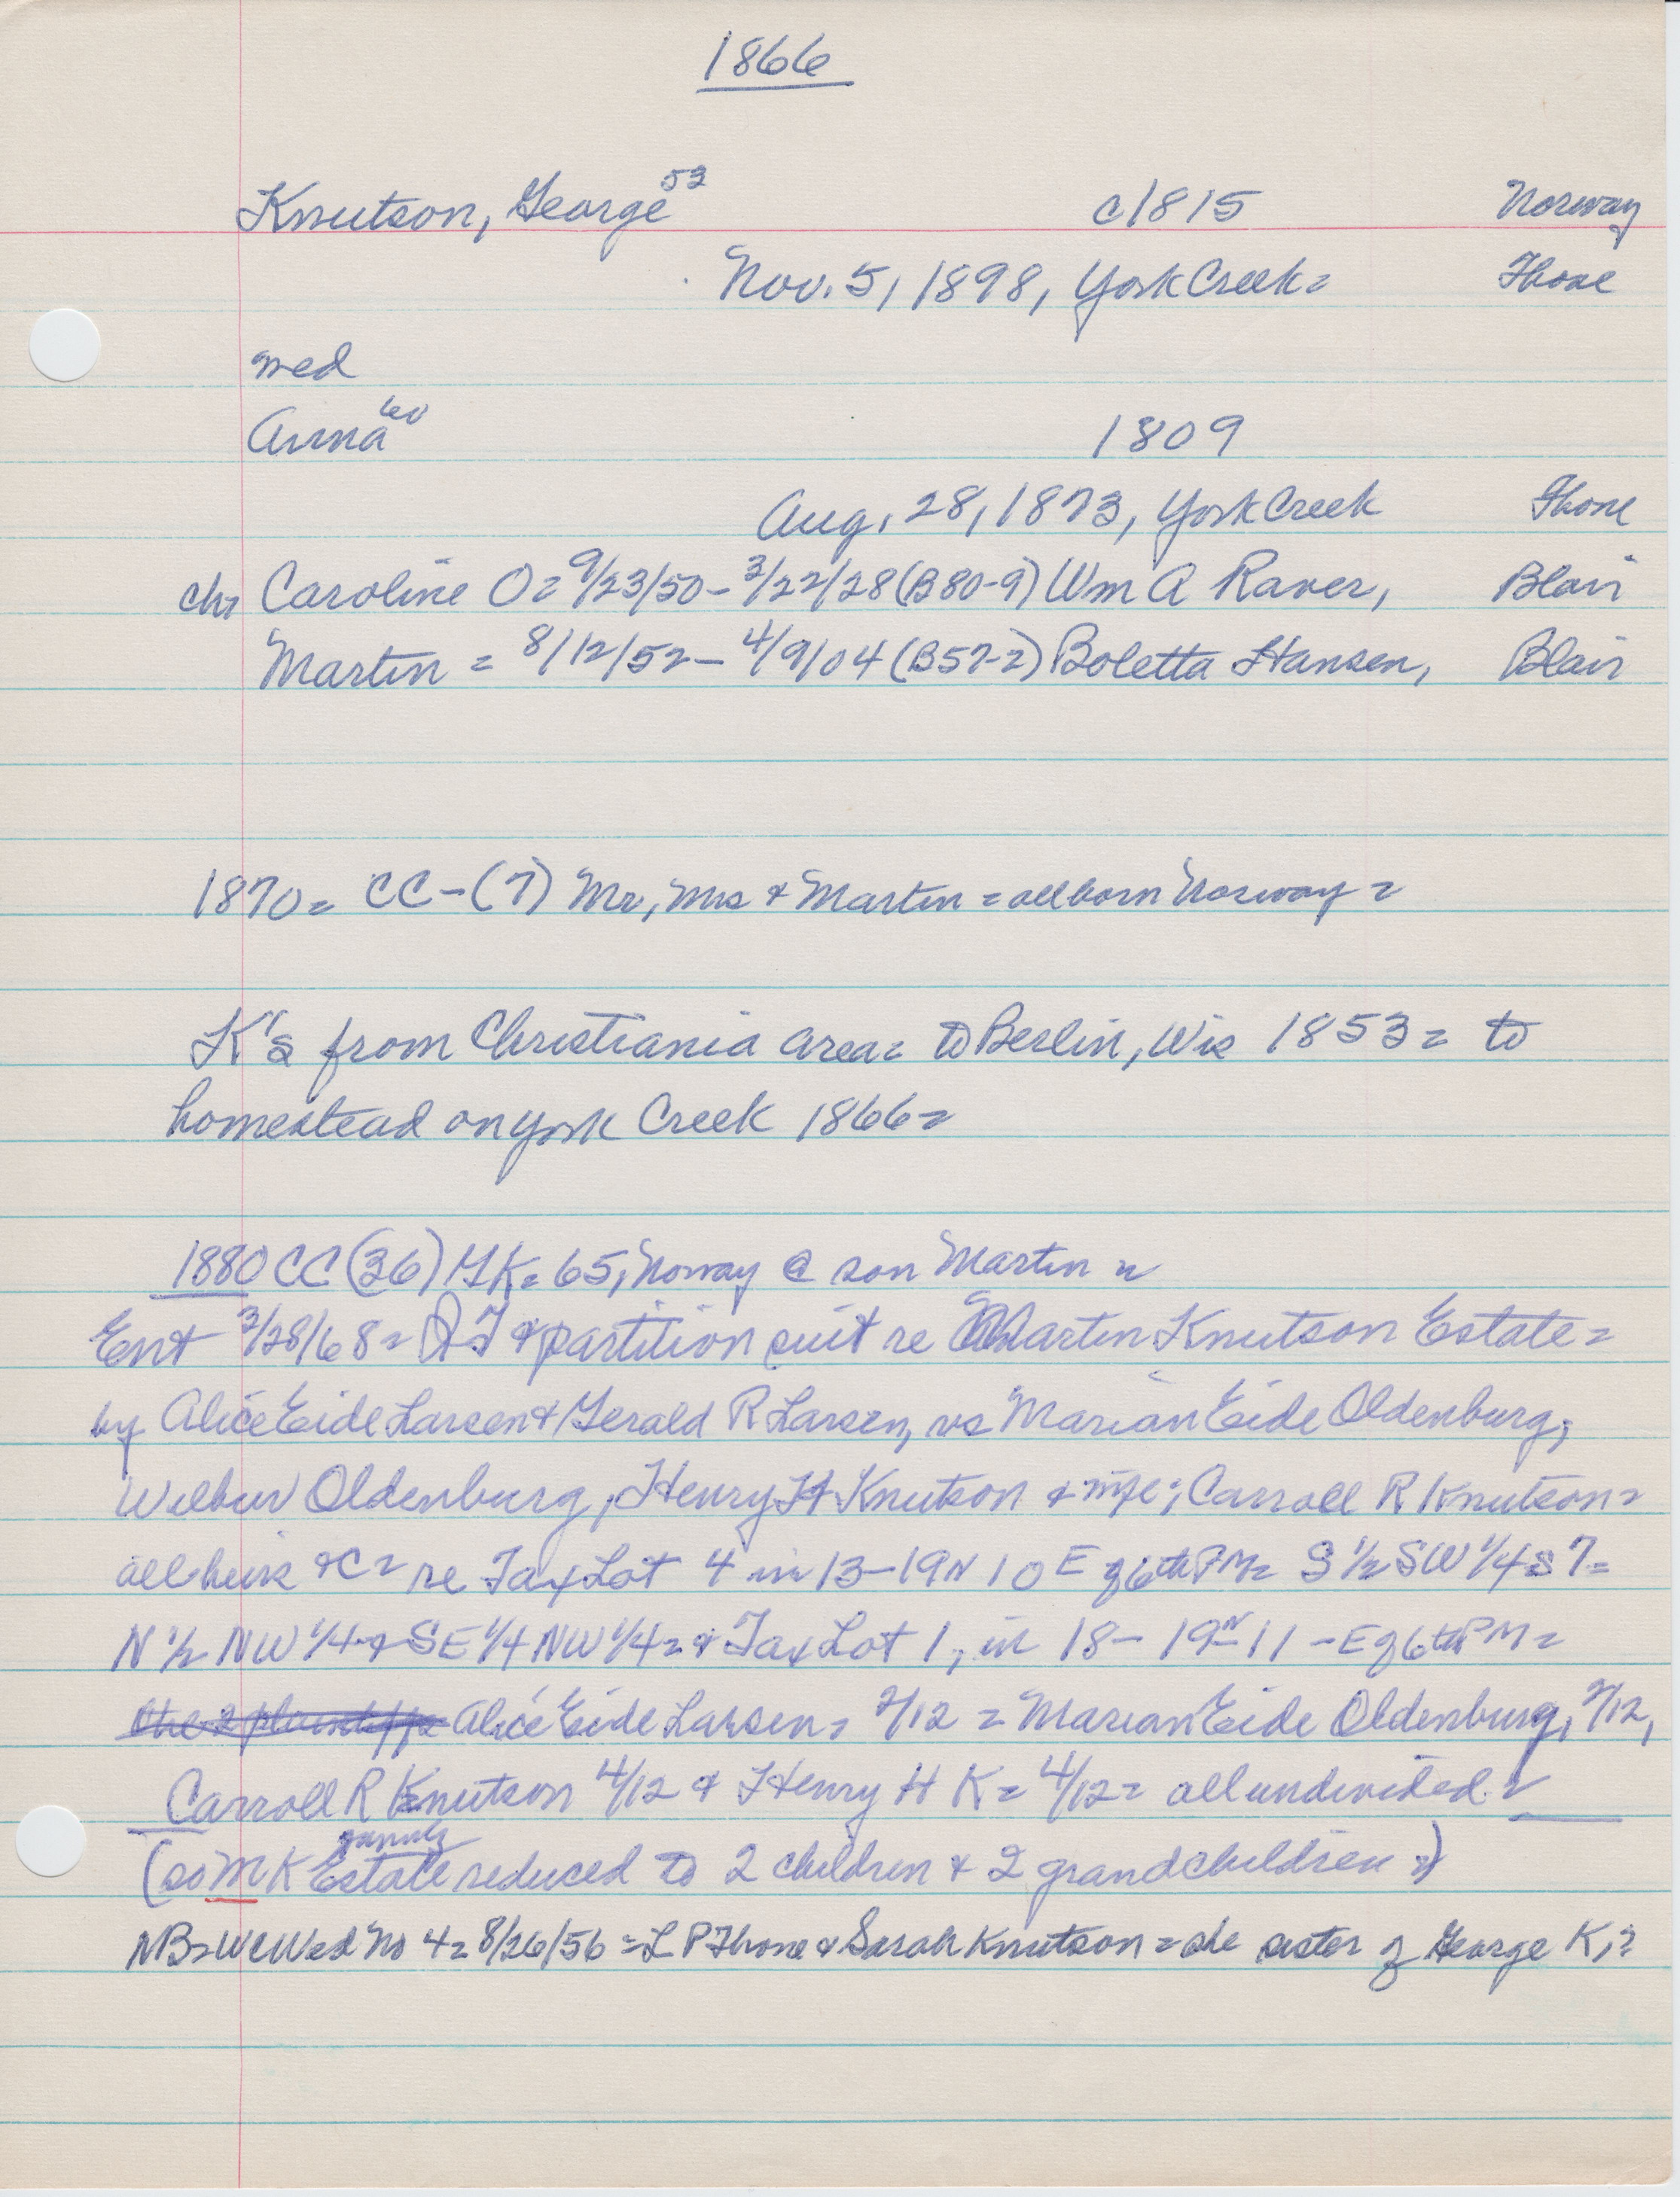 1866
Knutson, George 53 c1815 Norway
Nov. 5, 1898, York Creek= Thone
med
Anna 60 1809
Aug. 28, 1873, York Creek Thone
ch, Caroline O= 9/23/50 - 3/22/28 (B80-9) Wm A Raver, Blair
Martin = 8/12/52 - 4/9/04 (B57-2) Boletta Hansen, Blair
1870= CC-(7) Mr, Mrs & Martin = all born Norway =
K's from Christiania area= to Berlin, Wis 1853= to
homestead on York Creek 1866=
1880 CC (36) GK= 65, Norway @ son Martin =
Ent 3/28/68= QT & partition suit re Martin Knutson Estate=
by Alice Eide Larsen & Gerald R Larsen, vs Marian Eide Oldenburg,
Wilbur Oldenburg, Henry H Knutson & wife; Carroll R Knutson=
all heirs &C= re Tax Lot 4 in 13-19N 10 E of 6th PM= S 1/2 SW 1/4 S 7=
N 1/2 NW 1/4 & SE 1/4 NW 1/4= & Tax Lot 1, in 18-19N-11-E of 6th PM=
the 2 plaintiffs Alice Eide Larsen= 2/12 = Marian Eide Oldenburg, 2/12,
Carroll R Knutson 4/12 & Henry H K= 4/12= all undivided.=
family
(so M K Estate reduced to 2 children & 2 grandchildren=)
NB= WC Wed No 4= 8/26/56 = L P Thone & Sarah Knutson = she sister of George K,?